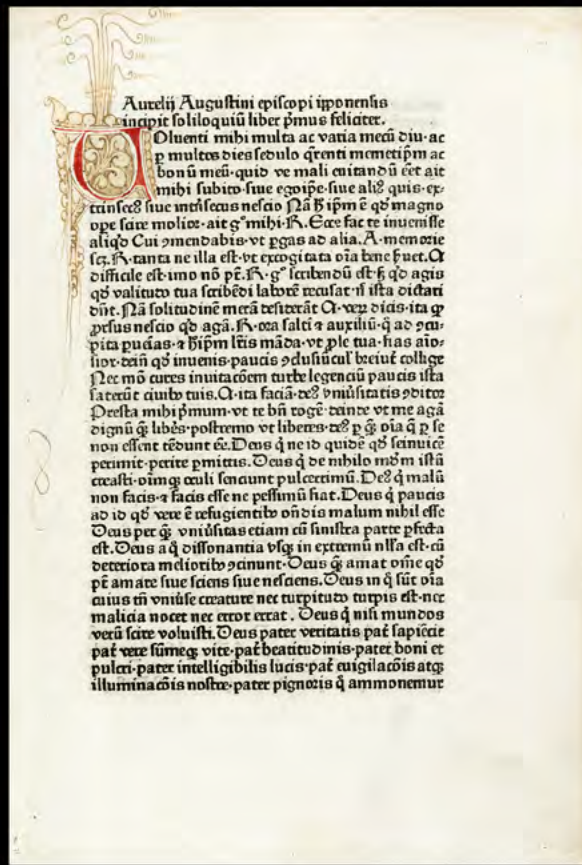 Aurelij Augustini episcopi ipponensis
incipit soliloquiū liber p̄mus feliciter.
UOluenti mihi multa ac varia mecū diu·ac
ꝑ multos dies sedulo q̄renti memetip̄m ac
bonū meū·quid ve mali euitandū eēt ait
mihi subito·siue egoip̄e·siue aliꝰ quis·ex-
trinsecꝰ siue intrīsecus nescio Nā h̄ ip̄m ē qd̄ magno
ope scire molior·ait g° mihi·R. Ecce fac te inuenisse
aliq̇d Cui ꝯmendabis·vt ꝑgas ad alia. A·memorie
scꝫ. R·tanta ne illa est·vt excogitata oīa bene ẜuet. A
difficile est·imo nō pt̄. R·g° scribendū est·s̄ qd̄ agis
qd̄ valitudo tua scribēdi laborē recusat·n̄ ista dictari
dn̄t. Nā solitudinē merā desiderāt A·veꝝ dicis·ita qꝫ
ꝓrsus nescio qd̄ agā. R·ora saltē ⁊ auxiliū·q̇ ad ꝯcu-
pita ꝑueias·⁊ h̄ip̄m lr̄is māda·vt ꝓle tua·fias aīo-
sior·dein̄ qd̄ inuenis·paucis ꝯclusiūcul' breuit̄ collige
Nec mō cures inuitacōem turbe legenciū paucis ista
sat erūt ciuibꝰ tuis. A·ita faciā·deꝰ vniūsitatis ꝯditor
Presta mihi p̄mum·vt te bn̄ rogē·deinde vt me agā
dignū q̄ꝫ liбes·postremo vt liberes·deꝰ ꝑ q̄ꝫ oīa q̄ ꝑ se
non essent tēdunt eē. Deus q̇ ne id quidē qd̄ seinuicē
perimit·perire ꝑmittis. Deus q̇ de nihilo mūdm istū
creasti·oīmqꝫ oculi senciunt pulcerrimū. Deꝰ q̇ malū
non facis·⁊ facis esse ne pessimū fiat. Deus q̇ paucis
ad id qd̄ vere ē refugientibꝰ on̄dis malum nihil esse
Deus per q̄ꝫ vniūsitas etiam cū sinistra parte ꝑfecta
est. Deus a q̇ dissonantia vsqꝫ in extremū nlla est·cū
deteriora melioribꝰ ꝯcinunt·Deus q̄ꝫ amat om̄e qd̄
pt̄ amare siue sciens siue nesciens. Deus in q̇ sūt oīa
cuius tn̄ vniūse creature nec turpitudo turpis est·nec
malicia nocet nec error errat. Deus q̇ nisi mundos
verū scire voluisti. Deus pater veritatis pat̄ sapiēcie
pat̄ vere sūmeqꝫ vite·pat̄ beatitudinis·pater boni et
pulcri·pater intelligibilis lucis·pat̄ euigilacōis atqꝫ
illuminacōis nostre·pater pignoris q̇ ammonemur